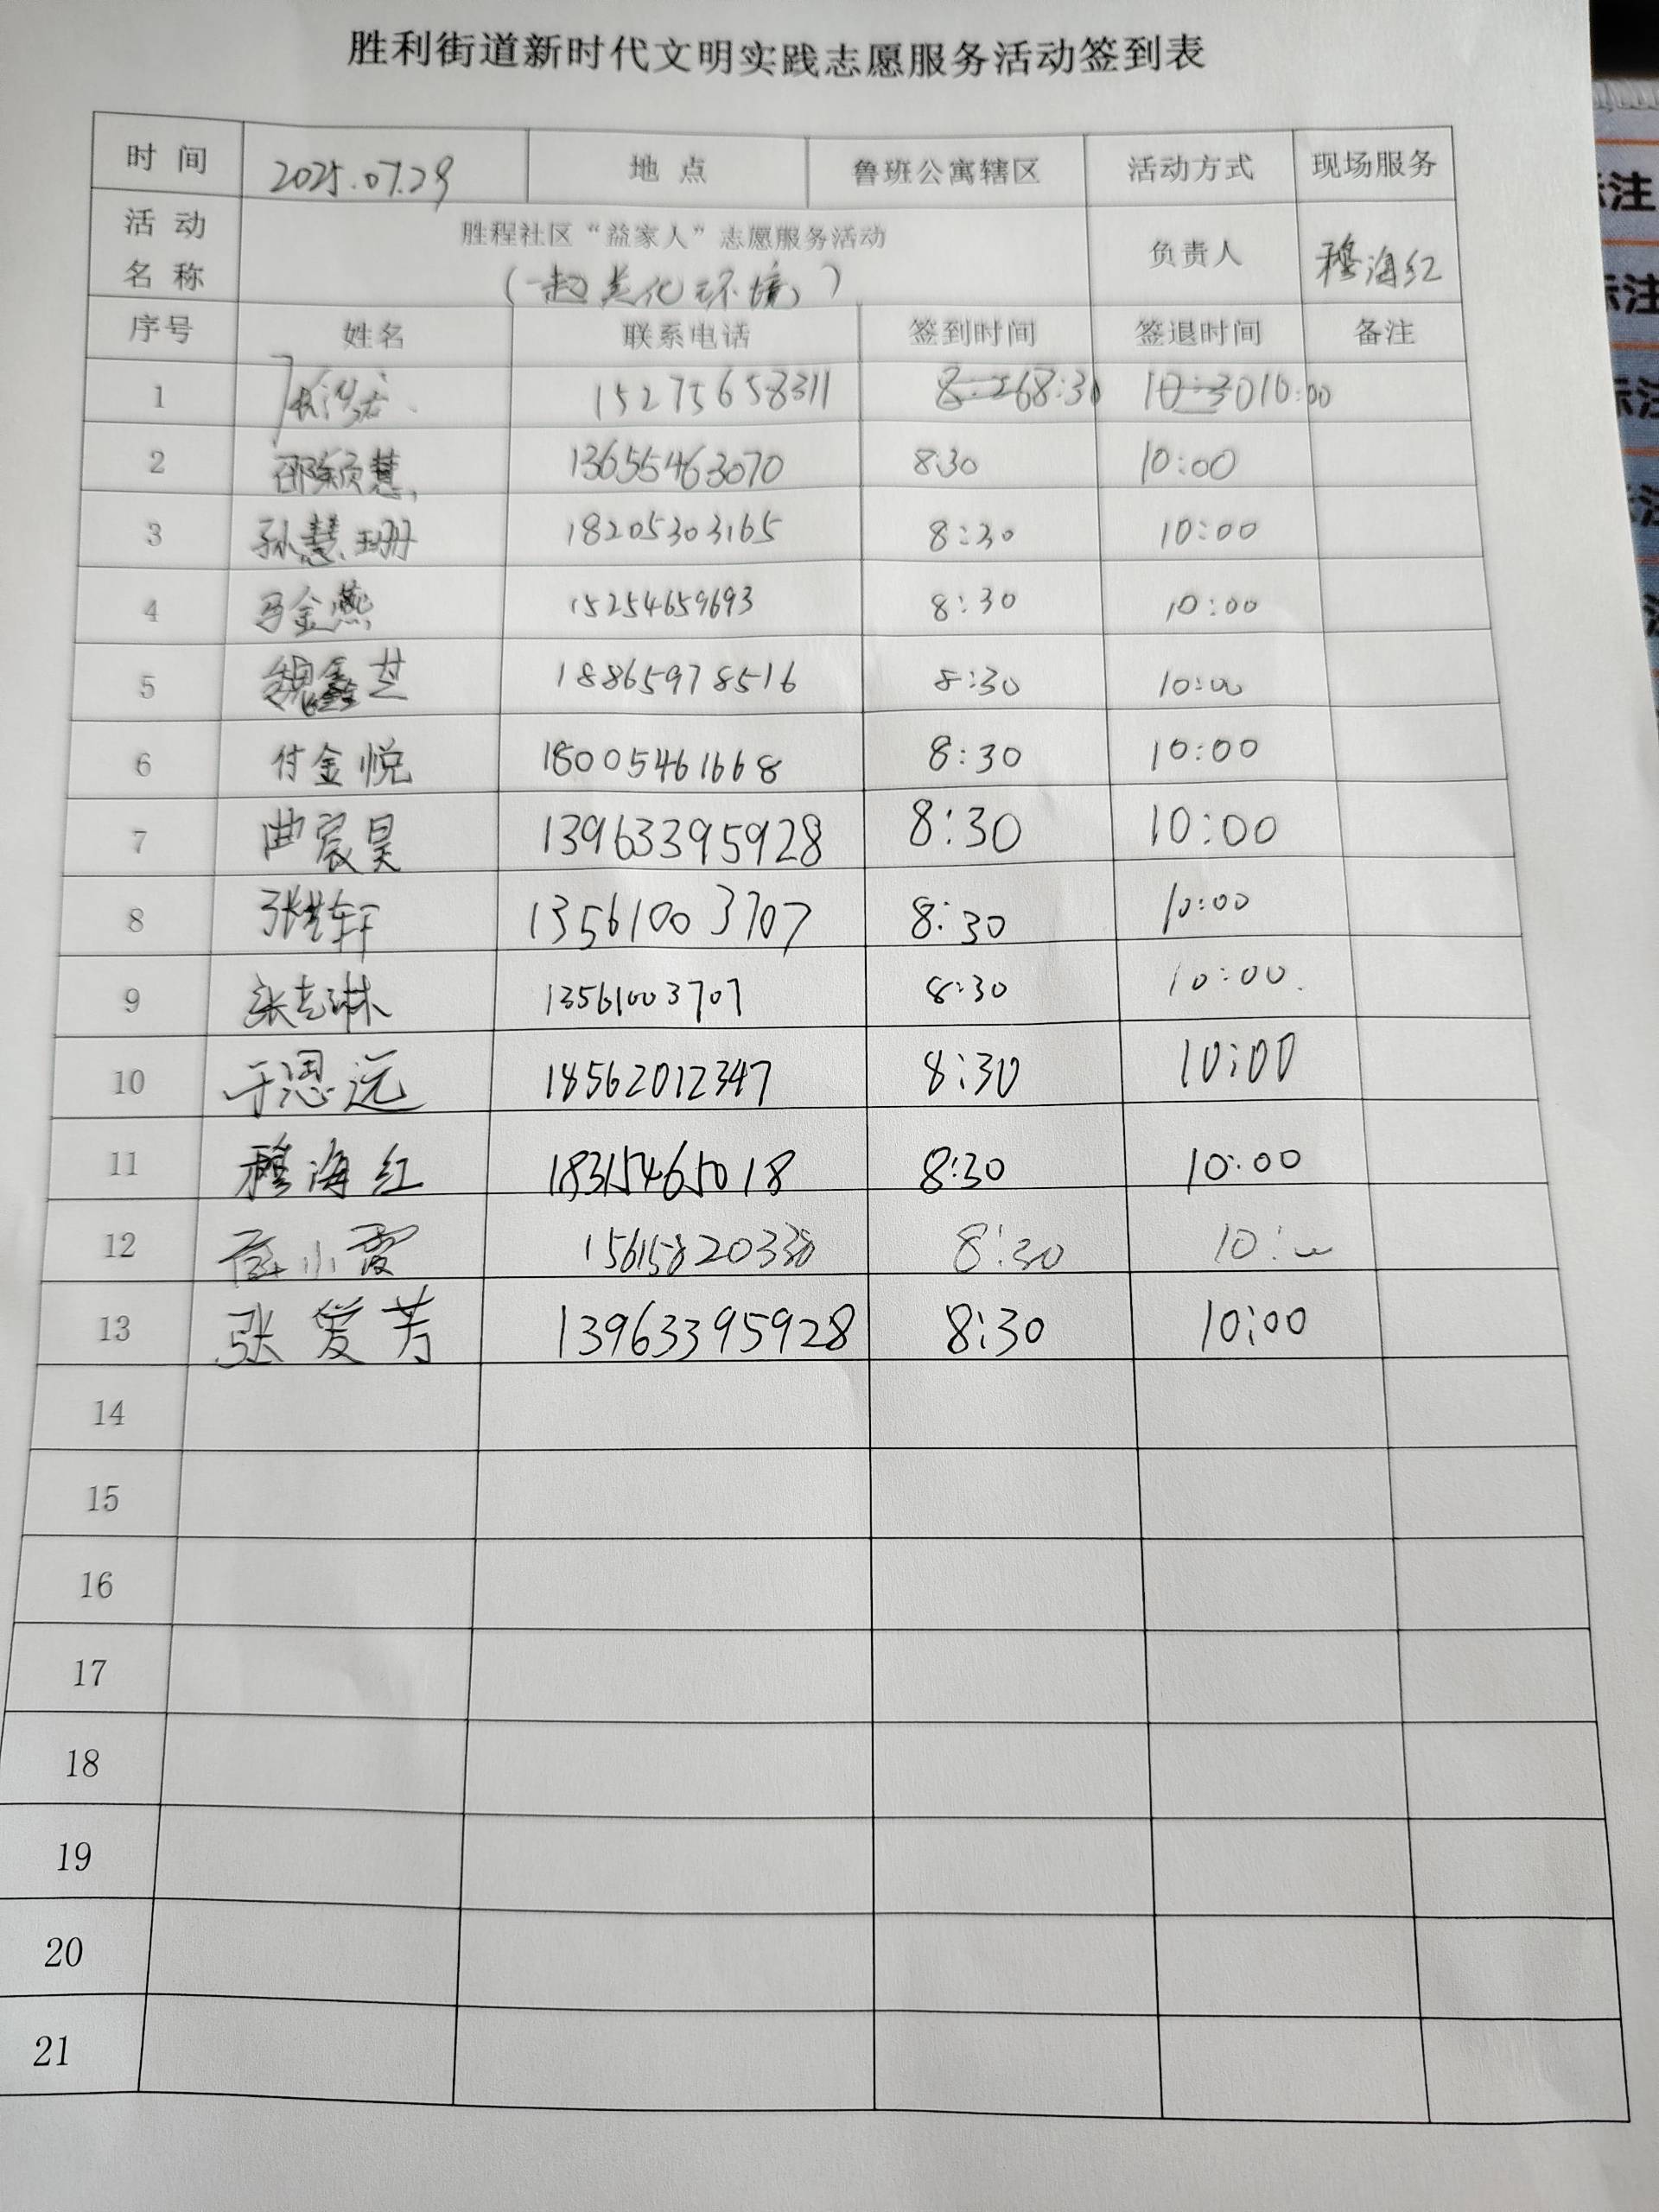 胜利街道新时代文明实践志愿服务活动签到表
时间 2025.07.29 地点 鲁班公寓辖区 活动方式 现场服务
活动名称 胜程社区“益家人”志愿服务活动 负责人 穆海红
(一起美化环境)
序号 姓名 联系电话 签到时间 签退时间 备注
1 15275658311 8:30 10:00
2 邵颖慧 13655463070 8:30 10:00
3 孙慧珊 18205303165 8:30 10:00
4 马金燕 15254659693 8:30 10:00
5 魏鑫芝 18865978516 8:30 10:00
6 付金悦 18005461668 8:30 10:00
7 曲宸昊 13963395928 8:30 10:00
8 13561003707 8:30 10:00
9 张志琳 13561003707 8:30 10:00
10 于恩远 18562012347 8:30 10:00
11 穆海红 18315465018 8:30 10:00
12 小霞 8:30 10:00
13 张爱芳 13963395928 8:30 10:00
14
15
16
17
18
19
20
21
注
标注
标注